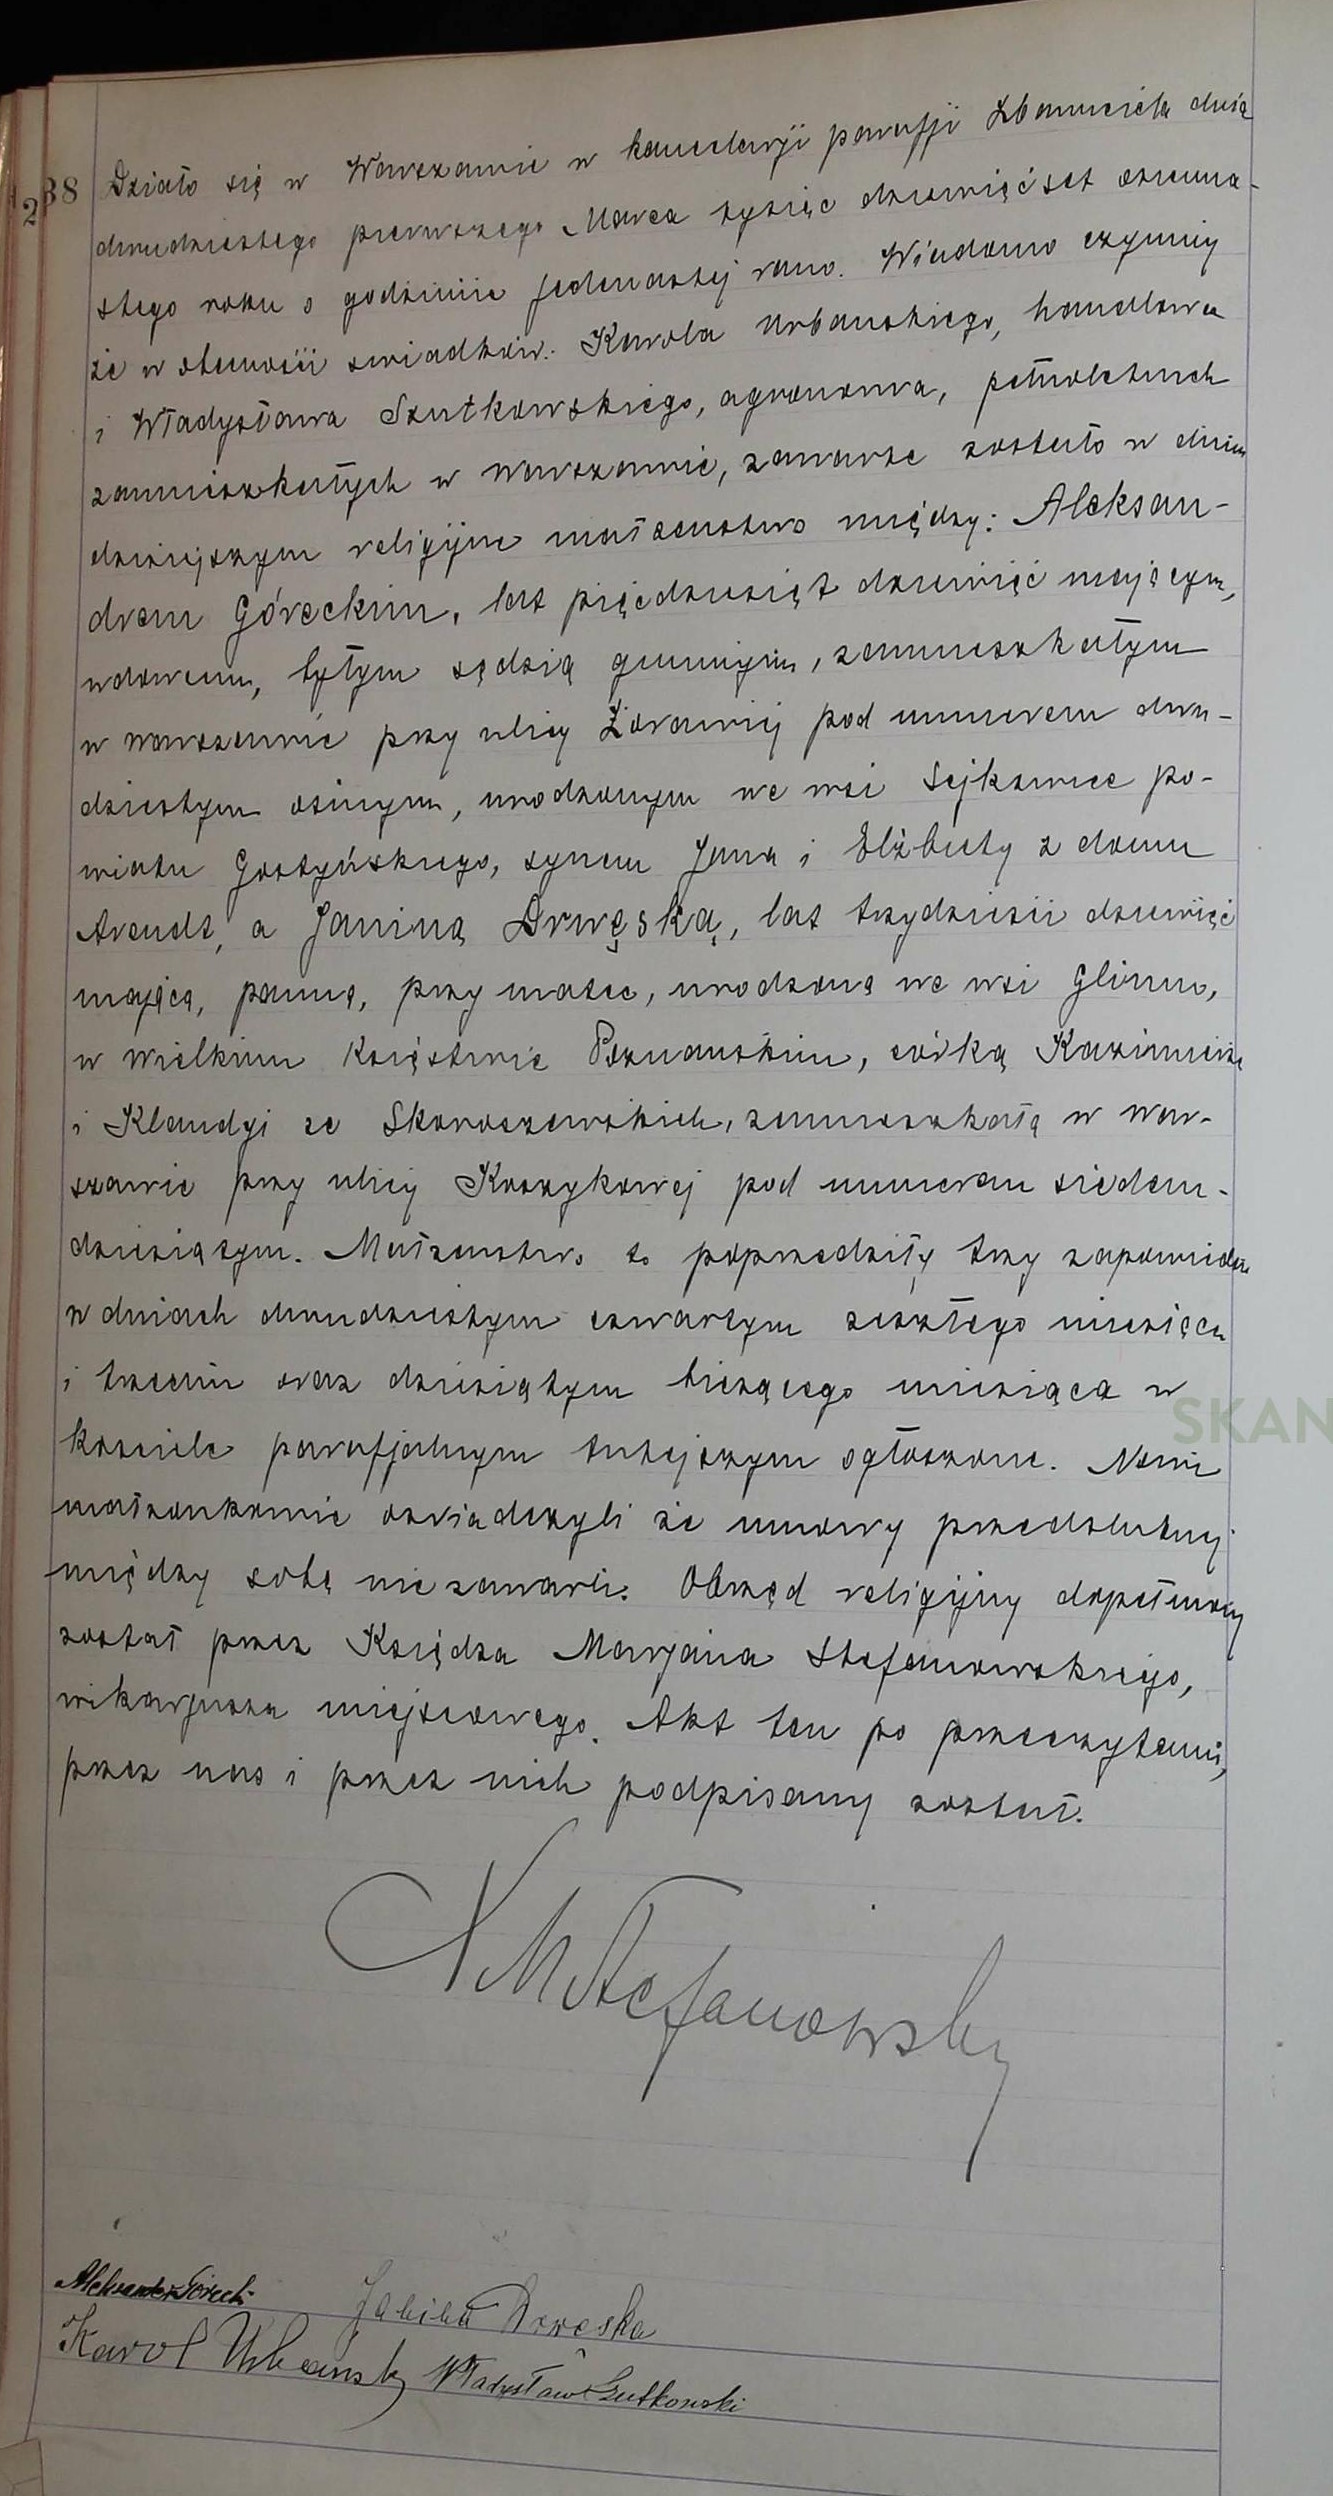 238
Działo się w Warszawie w kancelaryi parafji Zbawiciela dnia
dwudziestego pierwszego Marca tysiąc dziewięćset osiemna-
stego roku o godzinie jedenastej rano. Wiadomo czynimy
że w obecności świadków: Karola Urbańskiego, handlowca
i Władysława Szutkowskiego, agronoma, pełnoletnich
zamieszkałych w Warszawie, zawarte zostało w dniu
dzisiejszym religijne małżeństwo między: Aleksan-
drem Góreckim, lat pięćdziesiąt dziewięć mającym,
wdowcem, byłym sędzią gminnym, zamieszkałym
w Warszawie przy ulicy Żórawiej pod numerem dwu-
dziestym ósmym, urodzonym we wsi Sejkowice po-
wiatu Gostyńskiego, synem Jana i Elżbiety z domu
Arendt, a Janiną Drwęską, lat trzydzieści dziewięć
mającą, panną, przy matce, urodzoną we wsi Glinno,
w Wielkim Księstwie Poznańskim, córką Kazimierza
i Klaudyi ze Skoroszewskich, zamieszkałą w War-
szawie przy ulicy Koszykowej pod numerem siedem-
dziesiątym. Małżeństwo to poprzedziły trzy zapowiedzi
w dniach dwudziestym czwartym zeszłego miesiąca
i trzecim oraz dziesiątym bieżącego miesiąca w
kościele parafjalnym tutejszym ogłoszone. Nowi
małżonkowie oświadczyli że umowy przedślubnej
między sobą nie zawarli. Obrzęd religijny dopełniony
został przez Księdza Marjana Stefanowskiego,
wikarjusza miejscowego. Akt ten po przeczytaniu,
przez nas i przez nich podpisany został.
X M Stefanowski
Aleksander Górecki Janina Drwęska
Karol Urbański Władysław Szutkowski
SKAN